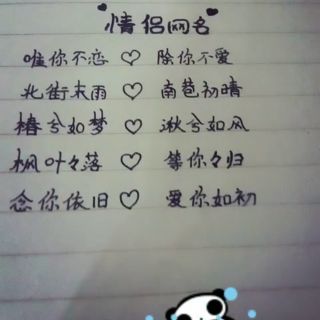 情侣网名
唯你不恋 ♡ 除你不爱
北街末雨 ♡ 南苞初晴
椿兮如梦 ♡ 湫兮如风
枫叶々落 ♡ 等你々归
念你依旧 ♡ 爱你如初